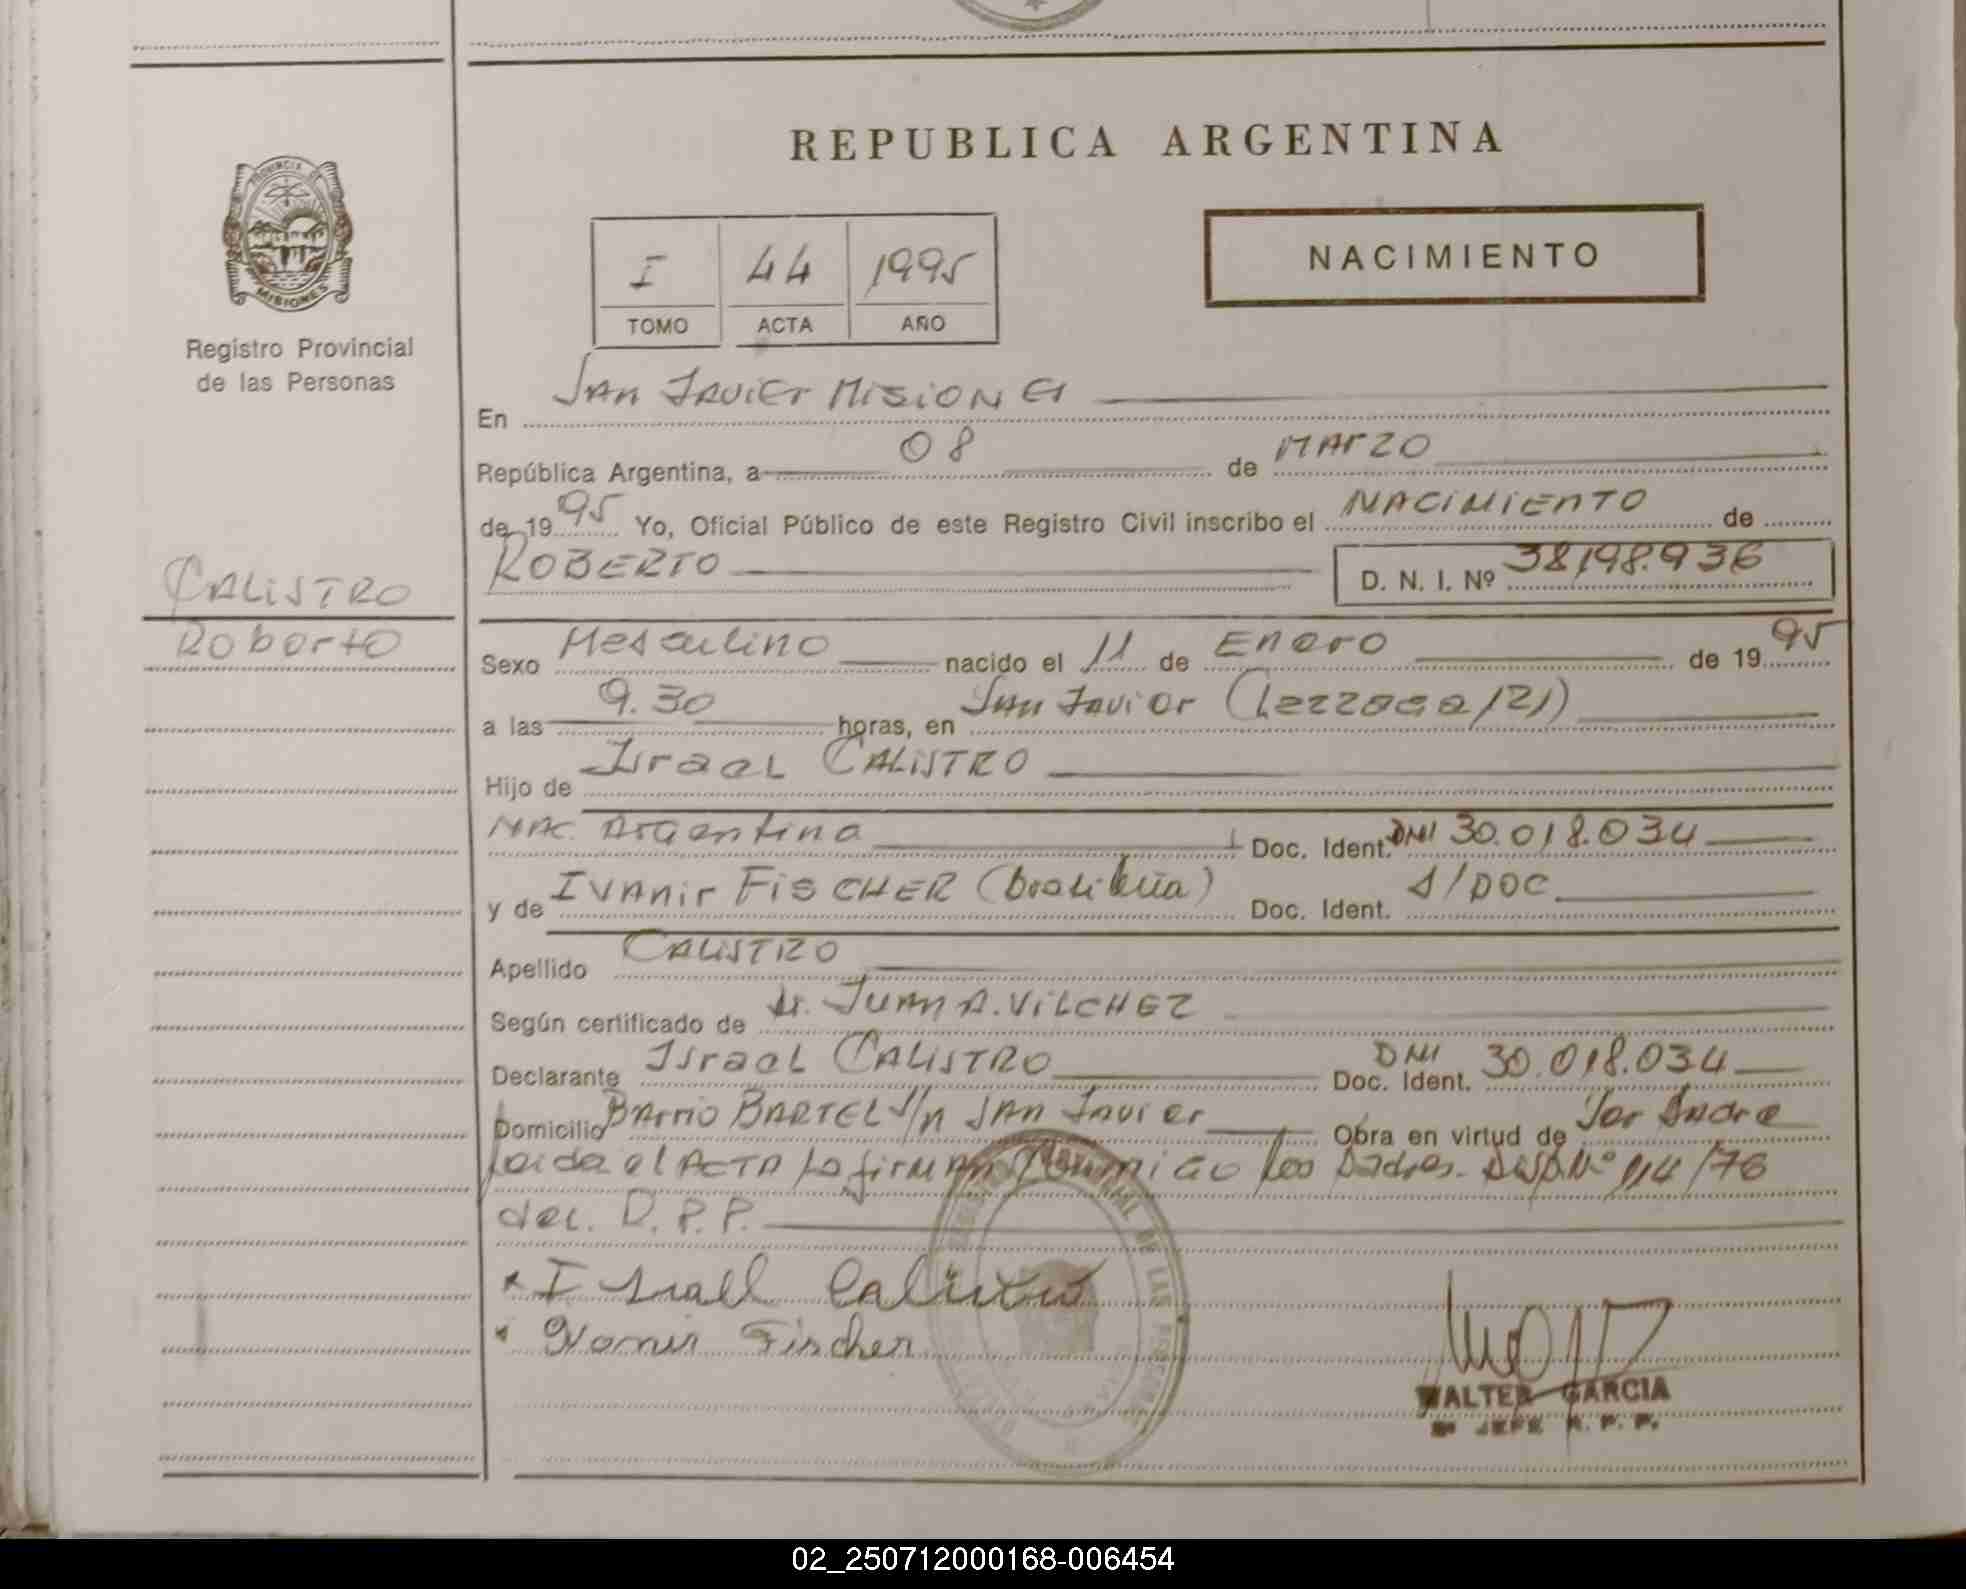 REPUBLICA ARGENTINA
PROVINCIA DE
MISIONES
Registro Provincial
de las Personas
I 44 1995
TOMO ACTA AÑO
NACIMIENTO
En SAN JAVIER MISIONES
República Argentina, a 08 de MARZO
de 1995 Yo, Oficial Público de este Registro Civil inscribo el NACIMIENTO de
ROBERTO D. N. I. Nº 38198.936
CALISTRO
Roberto
Sexo Masculino nacido el 11 de Enero de 1995
a las 9.30 horas, en San Javier ( 121)
Hijo de Israel CALISTRO
NAC. Argentina Doc. Ident. DNI 30.018.034
y de IVANIR FISCHER (brasileña) Doc. Ident. S/DOC
Apellido CALISTRO
Según certificado de Dr. JUAN A. VILCHEZ
Declarante Israel CALISTRO Doc. Ident. DNI 30.018.034
Domicilio Barrio BARTEL S/n SAN Javier Obra en virtud de Ser Padre
Leida el ACTA La firman conmigo los Padres. Disp. Nº 114/76
del. D.P.P.
x Israel Calistro
x Ivanir Fischer
WALTER GARCIA
JEFE R. P. P.
02_250712000168-006454